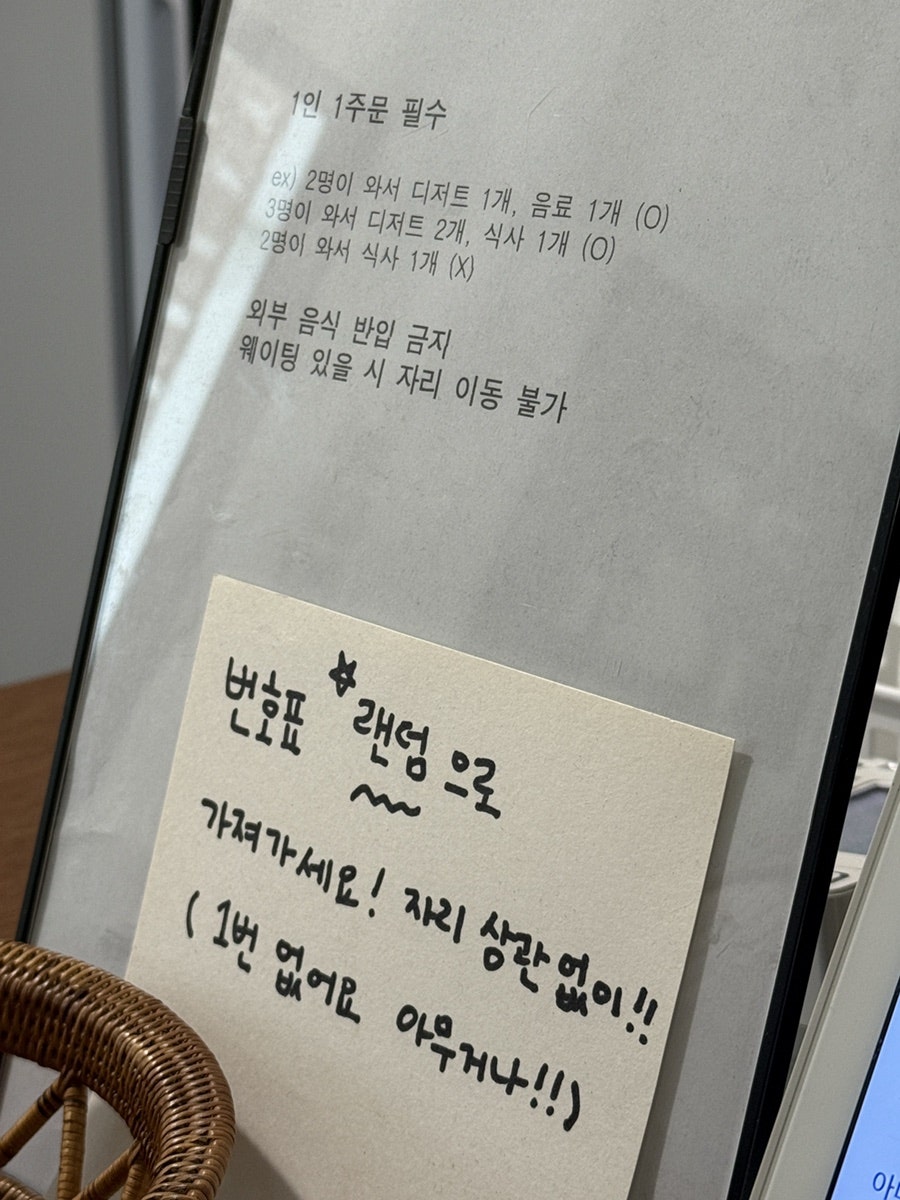 1인 1주문 필수
ex) 2명이 와서 디저트 1개, 음료 1개 (O)
3명이 와서 디저트 2개, 식사 1개 (O)
2명이 와서 식사 1개 (X)
외부 음식 반입 금지
웨이팅 있을 시 자리 이동 불가
번호표 ☆랜덤으로
가져가세요! 자리 상관없이!!
(1번 없어요 아무거나!!)